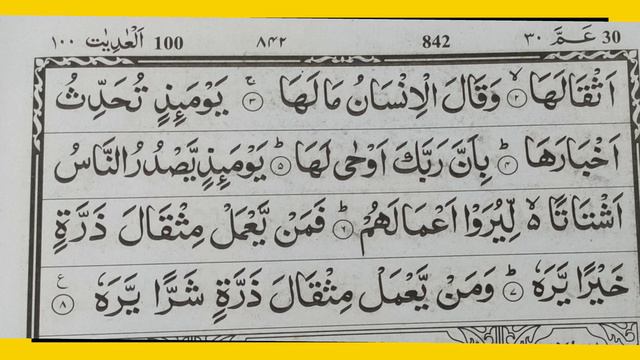 العٰدیٰت 100 ١٠٠ ٨٤٢ 842 عَمَّ ٣٠ 30
اَثْقَالَهَا ۙ﴿۲﴾ وَقَالَ الْاِنْسَانُ مَا لَهَا ۚ﴿۳﴾ يَوْمَئِذٍ تُحَدِّثُ
اَخْبَارَهَا ؕ﴿۴﴾ بِاَنَّ رَبَّكَ اَوْحٰى لَهَا ؕ﴿۵﴾ يَوْمَئِذٍ يَّصْدُرُ النَّاسُ
اَشْتَاتًا ۙ۬ لِّيُرَوْا اَعْمَالَهُمْ ؕ﴿۶﴾ فَمَنْ يَّعْمَلْ مِثْقَالَ ذَرَّةٍ
خَيْرًا يَّرَهٗ ؕ﴿۷﴾ وَمَنْ يَّعْمَلْ مِثْقَالَ ذَرَّةٍ شَرًّا يَّرَهٗ ﴿۸﴾ ع